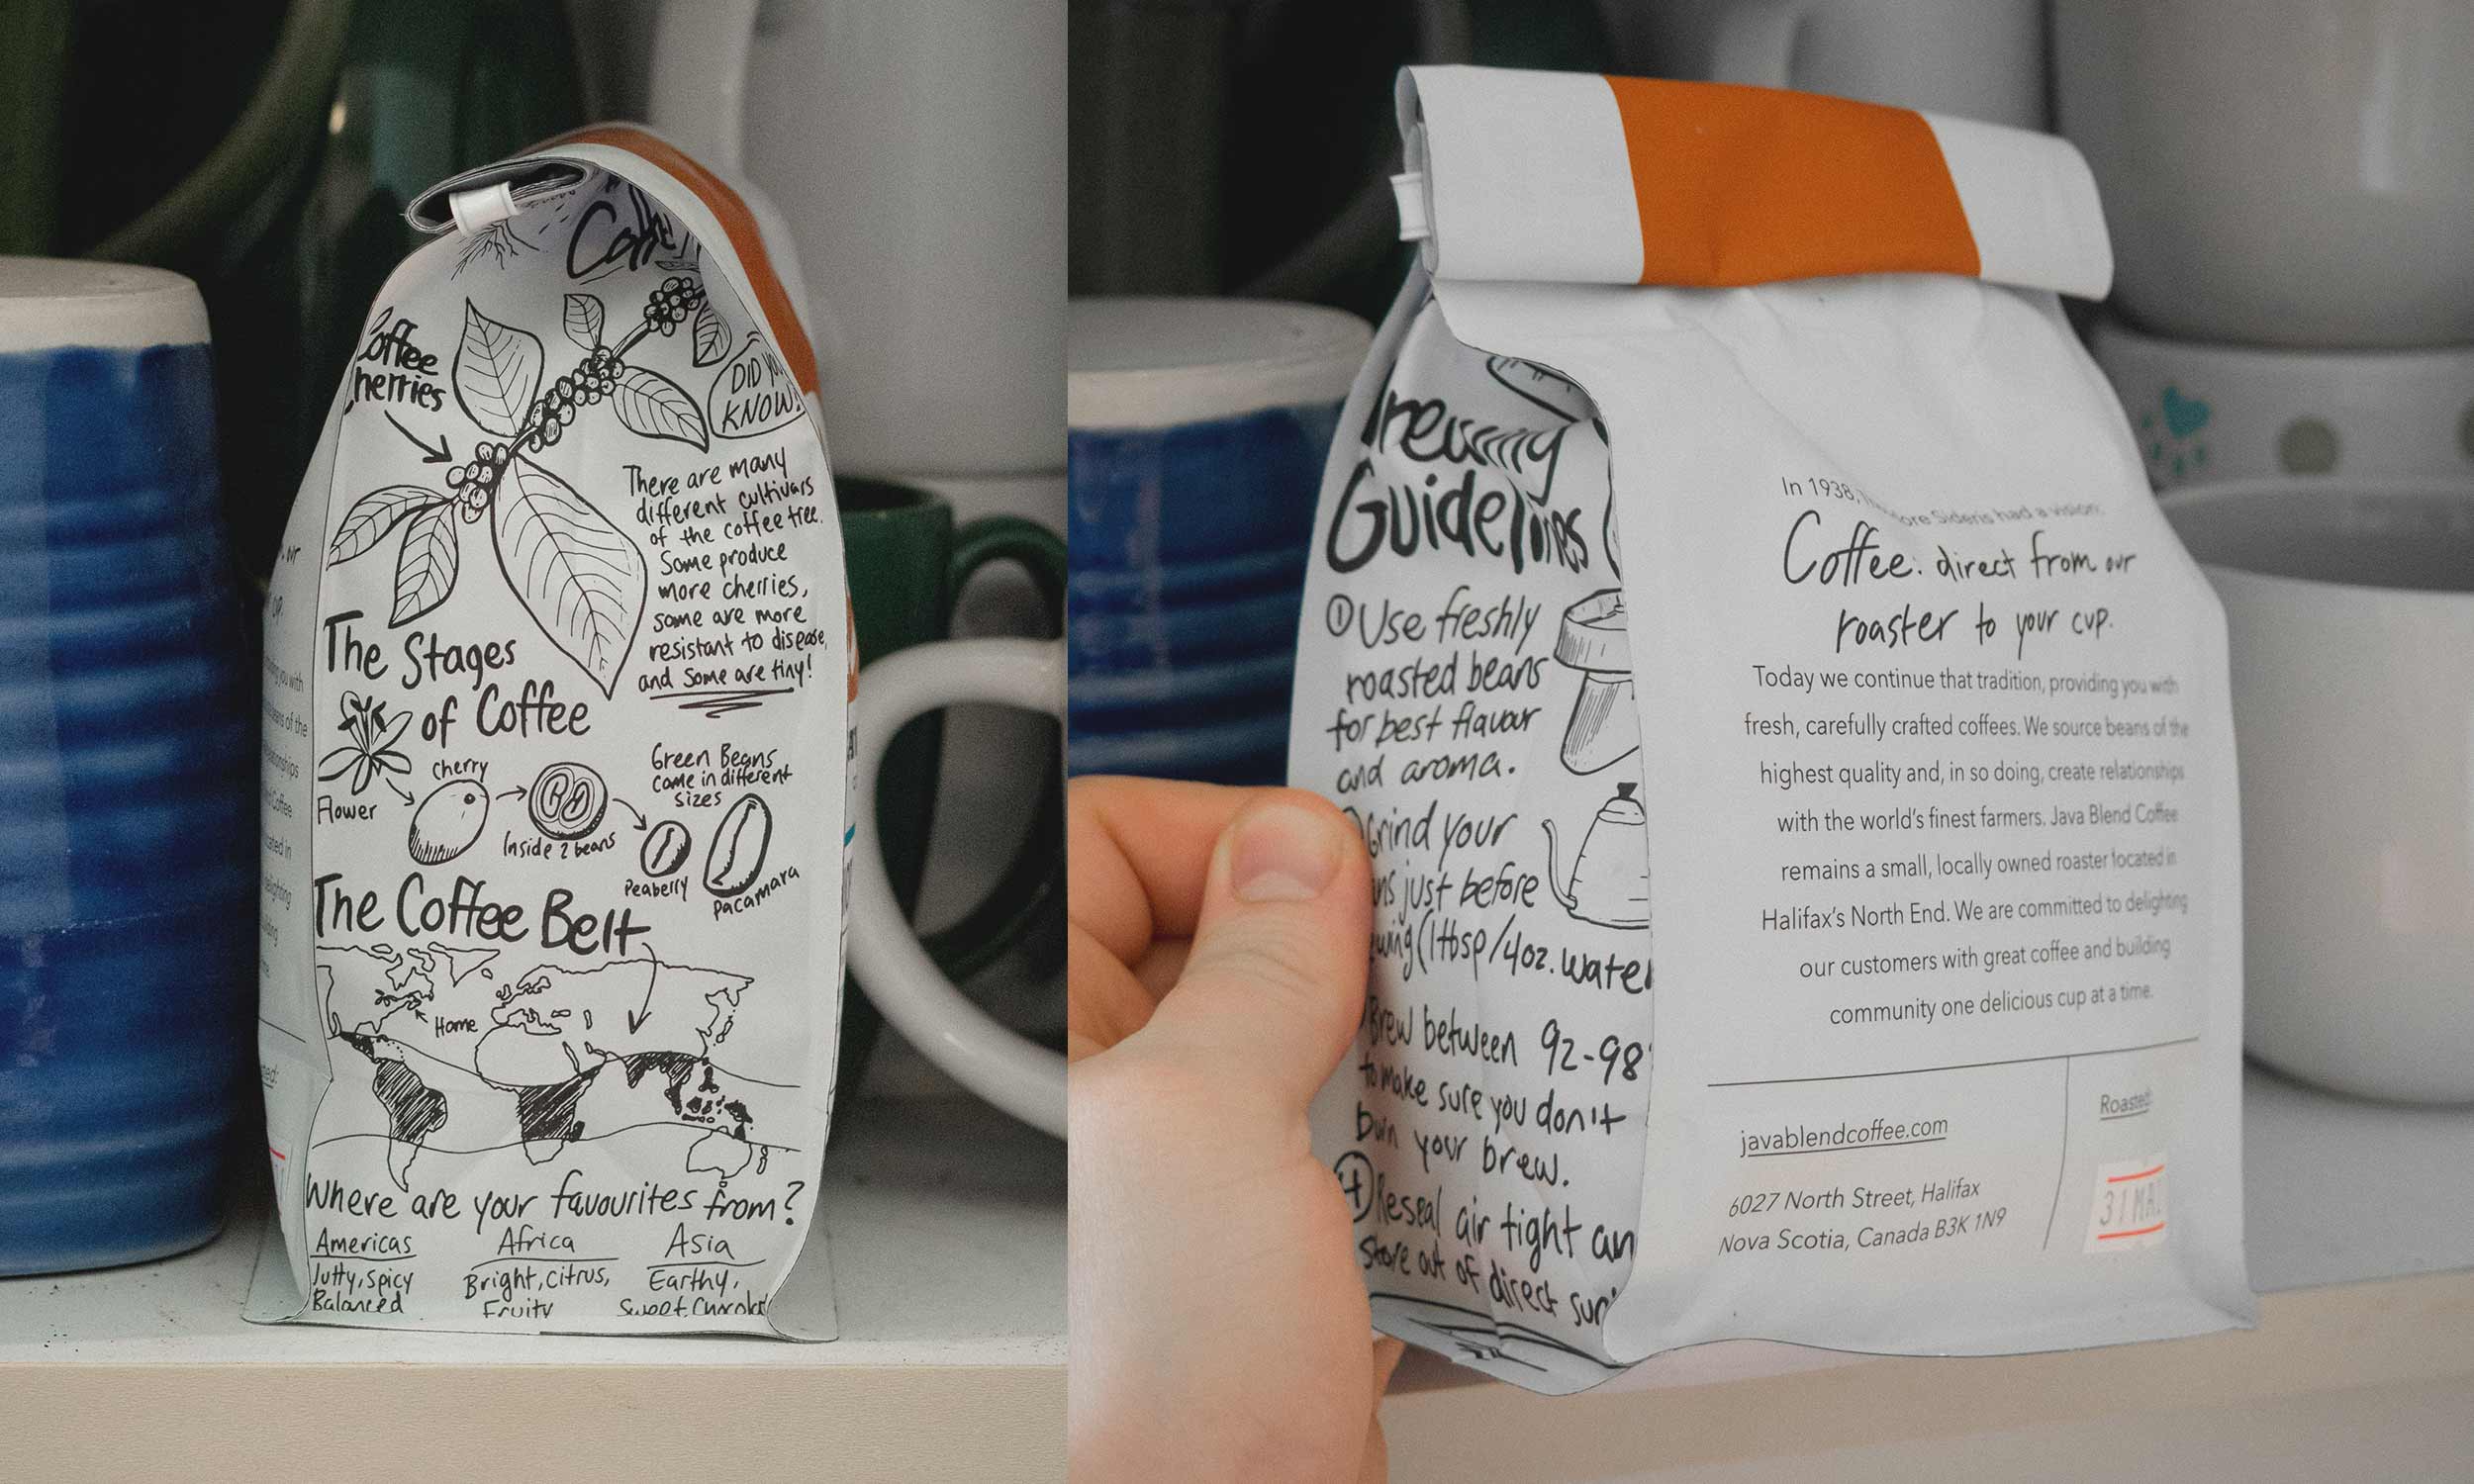 Coffee
Cherries
DID YOU
KNOW?
There are many
different cultivars
of the coffee tree.
Some produce
more cherries,
some are more
resistant to disease,
and Some are tiny!
The Stages
of Coffee
Flower
Cherry
Inside 2 beans
Green Beans
come in different
sizes
Peaberry
Pacamara
The Coffee Belt
Home
Where are your favourites from?
Americas
Nutty, Spicy
Balanced
Africa
Bright, citrus,
Fruity
Asia
Earthy,
Sweet, Chocolate
Brewing
Guidelines
① Use freshly
roasted beans
for best flavour
and aroma.
Grind your
just before
(1tbsp/4oz. water
Brew between 92-98°
to make sure you don't
burn your brew.
④ Reseal air tight an
store out of direct sun
In 1938, had a vision:
Coffee: direct from our
roaster to your cup.
Today we continue that tradition, providing you with
fresh, carefully crafted coffees. We source beans of the
highest quality and, in so doing, create relationships
with the world's finest farmers. Java Blend Coffee
remains a small, locally owned roaster located in
Halifax's North End. We are committed to delighting
our customers with great coffee and building
community one delicious cup at a time.
javablendcoffee.com
6027 North Street, Halifax
Nova Scotia, Canada B3K 1N9
Roasted:
31 MA